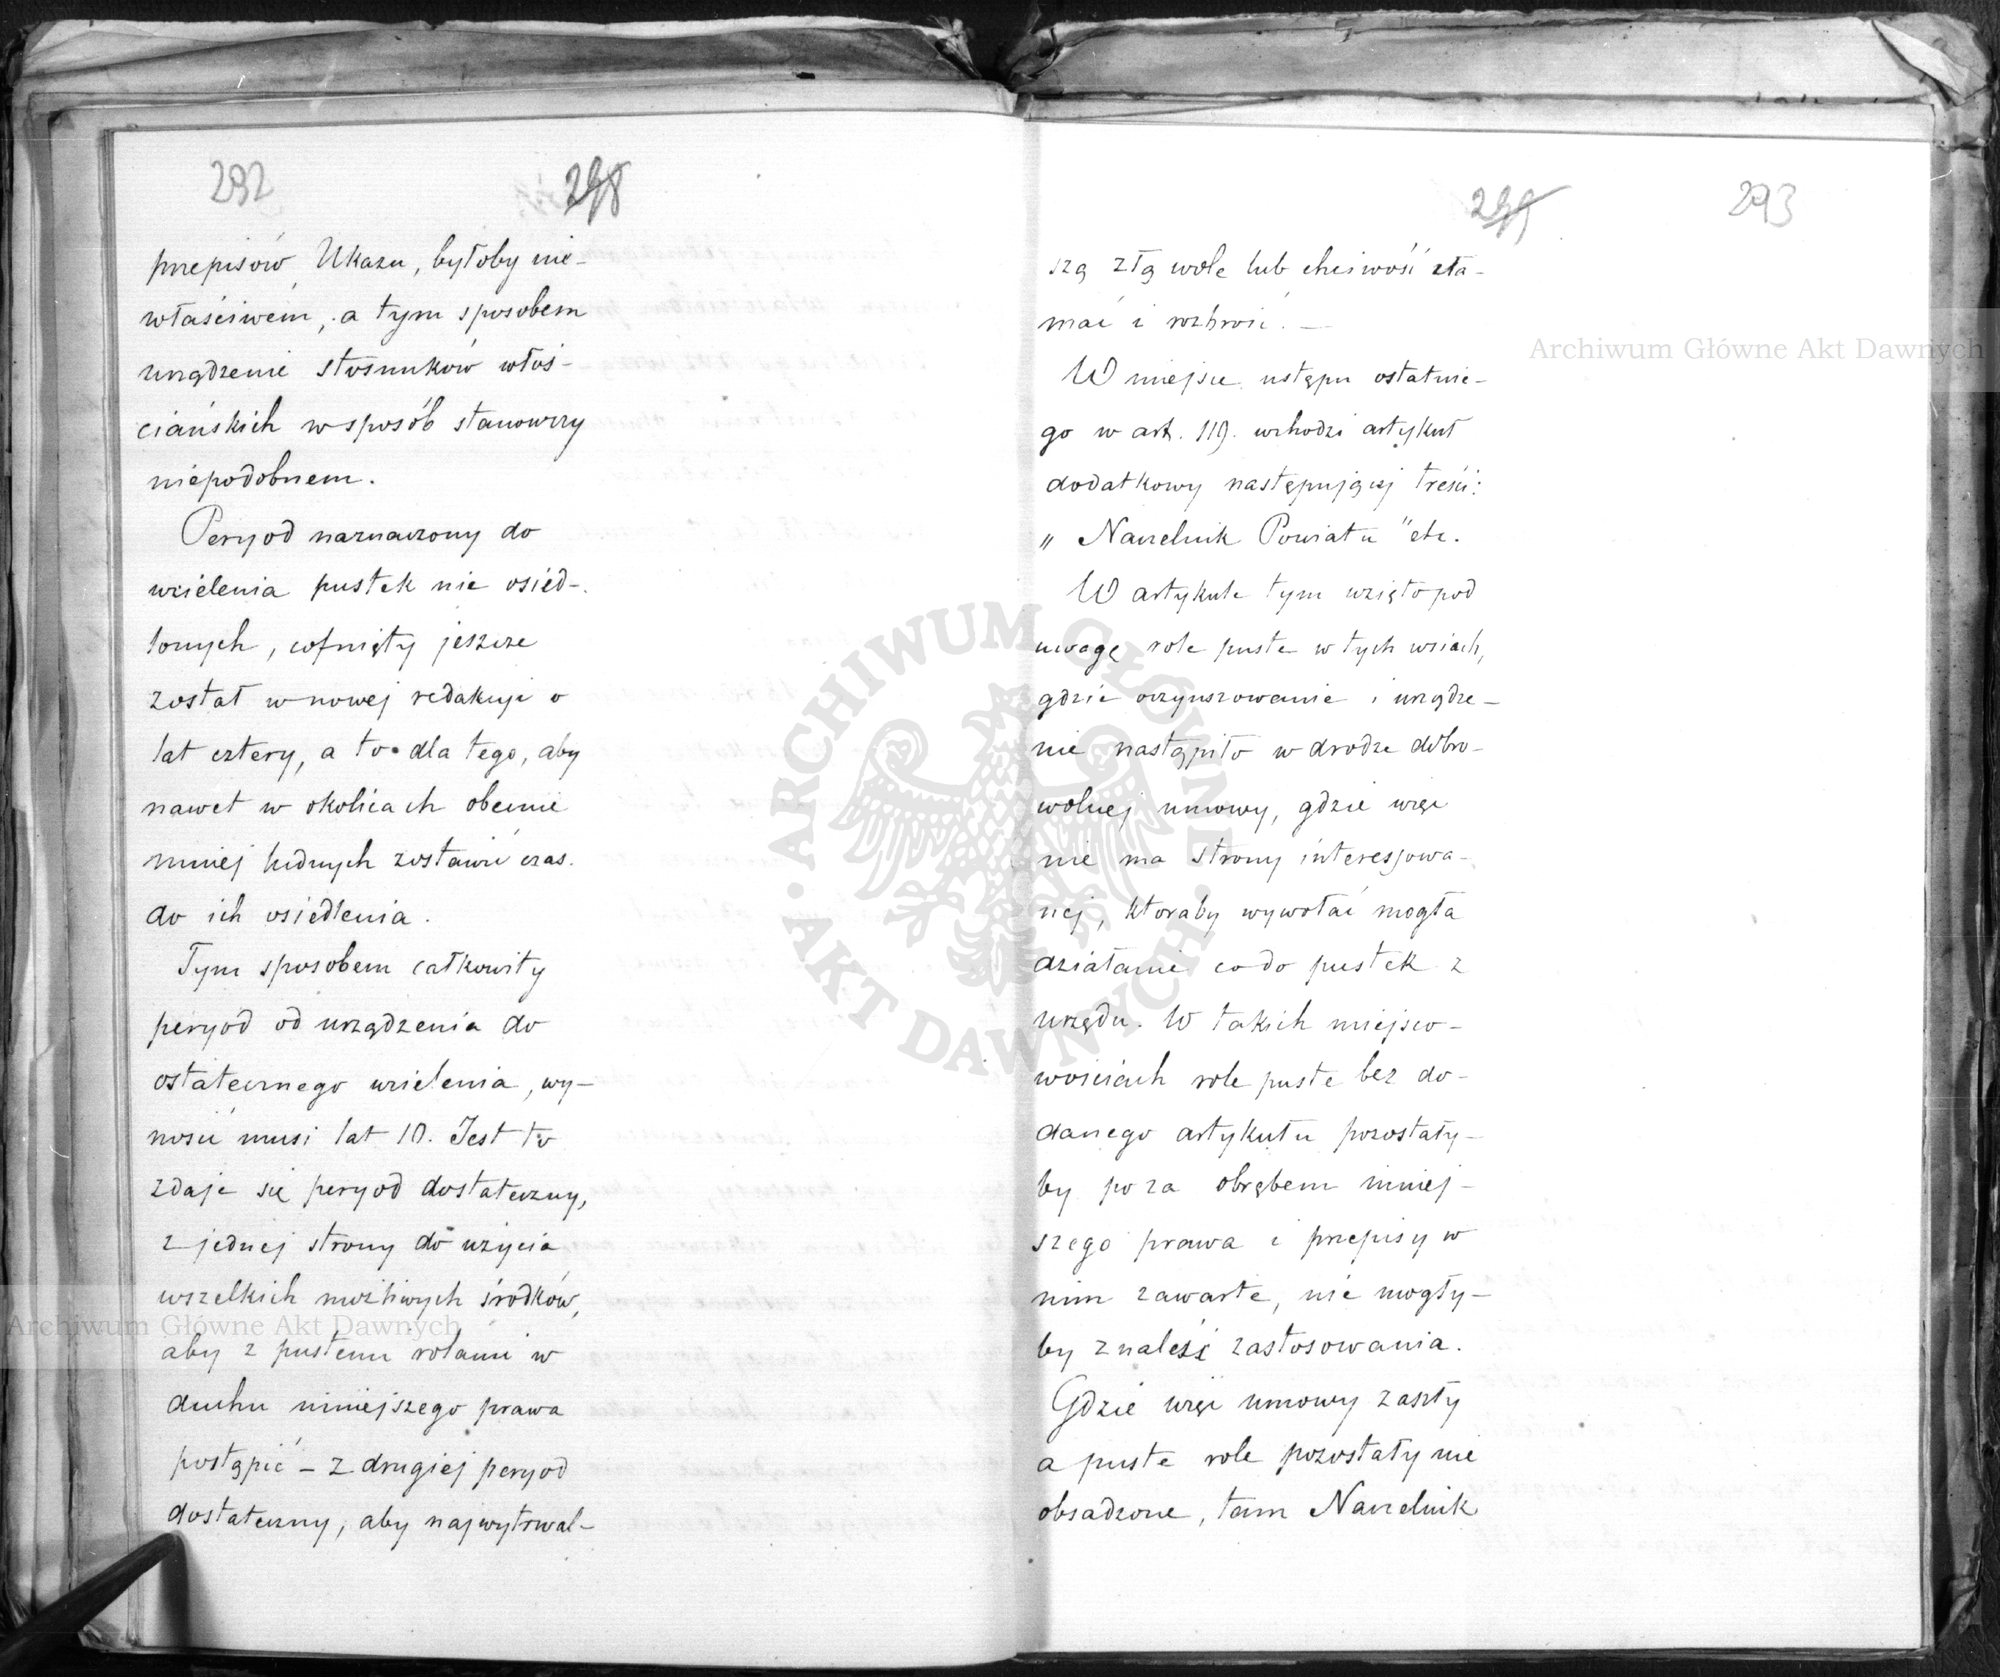 292 298
przepisów Ukazu, byłoby nie-
właściwem, a tym sposobem
urządzenie stosunków włoś-
ciańskich w sposób stanowczy
niepodobnem.
Peryod naznaczony do
wcielenia pustek nie osied-
lonych, cofnięty jeszcze
został w nowej redakcji o
lat cztery, a to dla tego, aby
nawet w okolicach obecnie
mniej ludnych zostawić czas
do ich osiedlenia.
Tym sposobem całkowity
peryod od urządzenia do
ostatecznego wcielenia, wy-
nosić musi lat 10. Jest to
zdaje się peryod dostateczny,
z jednej strony do użycia
wszelkich możliwych środków,
aby z pustemi rolami w
duchu niniejszego prawa
postąpić – z drugiej peryod
dostateczny, aby najwytrwal-
299 293
szą złą wolę lub chciwość zła-
mać i rozbroić. —
W miejsce ustępu ostatnie-
go w art. 119. wchodzi artykuł
dodatkowy następującej treści:
„ Naczelnik Powiatu " etc.
W artykule tym wzięto pod
uwagę role puste w tych wsiach,
gdzie oczynszowanie i urządze-
nie nastąpiło w drodze dobro-
wolnej umowy, gdzie więc
nie ma strony interesjowa-
nej, któraby wywołać mogła
działanie co do pustek z
urzędu. W takich miejsco-
wościach role puste bez do-
danego artykułu pozostały-
by poza obrębem niniej-
szego prawa i przepisy w
nim zawarte, nie mogły-
by znaleść zastosowania.
Gdzie więc umowy zaszły
a puste role pozostały nie
obsadzone, tam Naczelnik
Archiwum Główne Akt Dawnych
Archiwum Główne Akt Dawnych
ARCHIWUM GŁÓWNE
AKT DAWNYCH